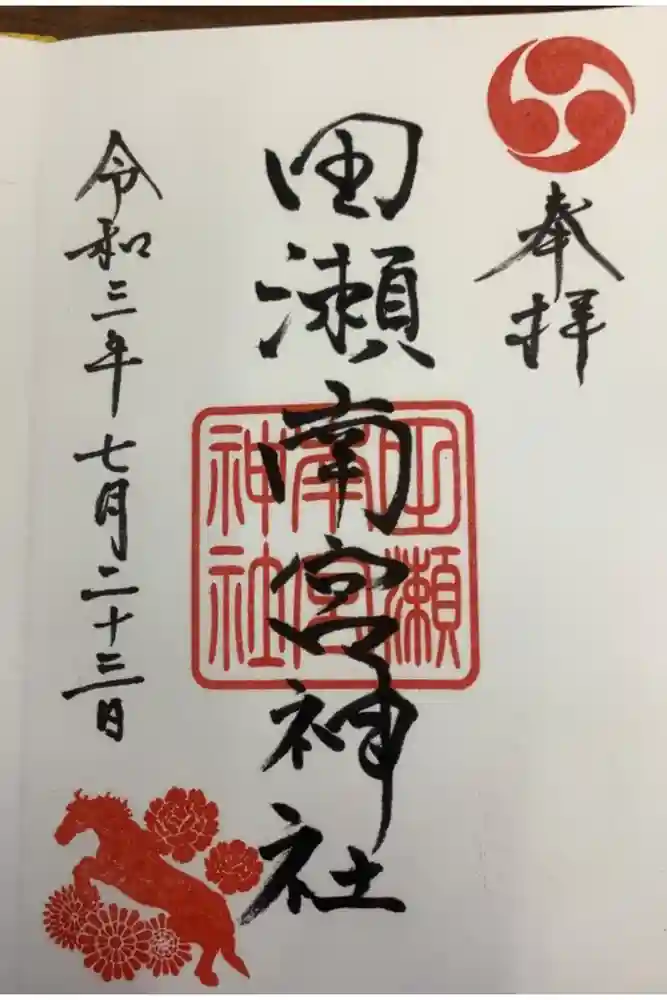 奉拝
田瀬南宮神社
田瀬
南宮
神社
令和三年七月二十三日